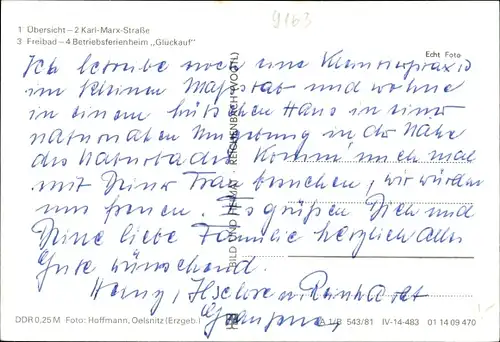 9163
1 Übersicht – 2 Karl-Marx-Straße
3 Freibad – 4 Betriebsferienheim „Glückauf“
Echt Foto
Ich betreibe noch eine Kleintierpraxis
im kleinen Maßstab und wohne
in einem hübschen Haus in einer
naturnahen Umgebung in der Nähe
des Naturbades. Komm' mich mal
mit Deiner Frau besuchen, wir würden
uns freuen. Es grüßen Dich und
Deine liebe Familie herzlich Alles
Gute wünschend
Heinz, Ilselore u. Reinhardt
BILD UND HEIMAT · REICHENBACH (VOGTL)
DDR 0,25 M Foto: Hoffmann, Oelsnitz (Erzgeb.)
A 1/B 543/81 IV-14-483 01 14 09 470